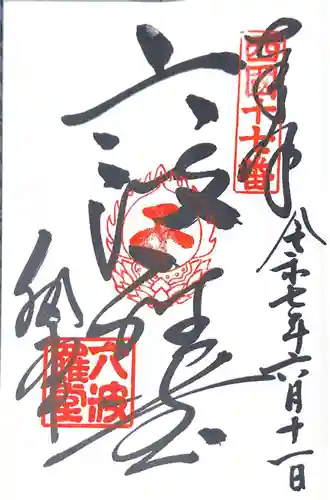 奉拝
西國十七番
令和七年六月十一日
六波羅堂
六波
羅堂